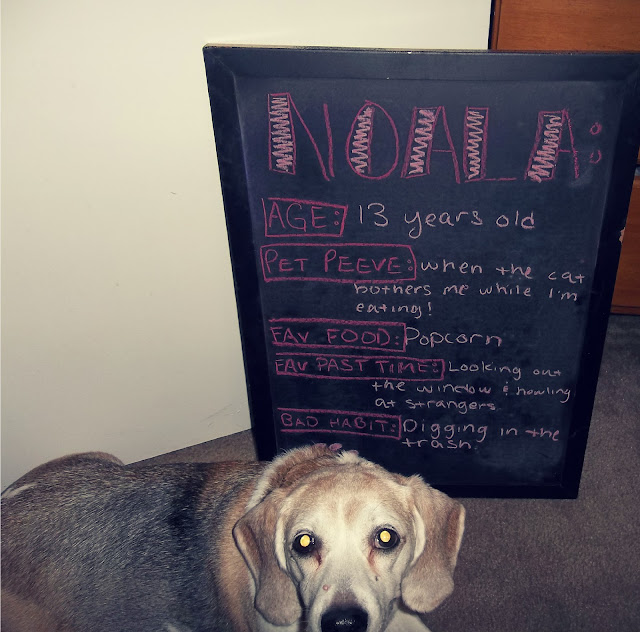 NOALA:
AGE: 13 years old
PET PEEVE: when the cat
bothers me while I'm
eating!
FAV FOOD: Popcorn
FAV PAST TIME: Looking out
the window & howling
at strangers
BAD HABIT: Digging in the
trash.